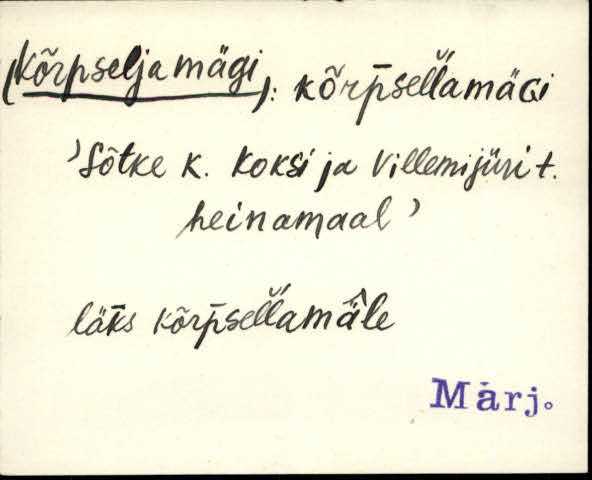 (Kõrpseljamägi): kõrp̄sel̆l̆amäGi
'Sõtke k. Koksi ja Villemijüri t.
heinamaal'
läk̄s kõrp̄sel̆l̆amä̂le
Märj.